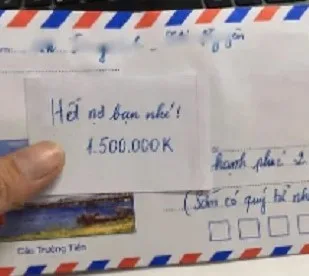 Hết nợ bạn nhé!
1.500.000K
hạnh phúc 2
(Sớm có quý tử nh
Cầu Trường Tiền